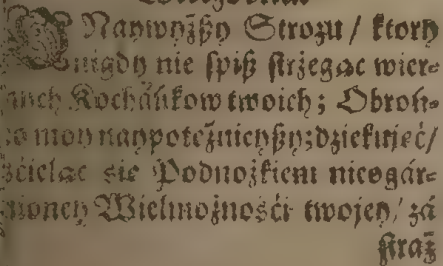 Naywyżßy Strożu / ktory
nigdy nie ſpiß ſtrzegąc wier-
nych Kochánkow twoich; Obroń-
co moy naypotężnieyßy; dziękuięć /
śćieląc się Podnożkiem nieogár-
nioney Wielmożnośći twoiey / zá
ſtraż